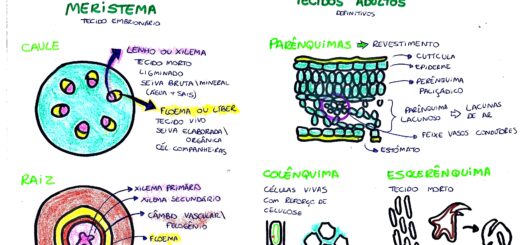 MERISTEMA
TECIDO EMBRIONÁRIO
CAULE
LENHO OU XILEMA
TECIDO MORTO
LIGMINADO
SEIVA BRUTA\MINERAL
(ÁGUA + SAIS)
FLOEMA OU LÍBER
TECIDO VIVO
SEIVA ELABORADA\
ORGÂNICA
CÉL COMPANHEIRAS
RAIZ
XILEMA PRIMÁRIO
XILEMA SECUNDÁRIO
CÂMBIO VASCULAR\
FELOGÊNIO
FLOEMA
TECIDOS ADULTOS
DEFINITIVOS
PARÊNQUIMAS → REVESTIMENTO
CUTÍCULA
EPIDERME
PERÊNQUIMA
PALIÇÁDICO
PARÊNQUIMA
LACUNOSO → LACUNAS
DE AR
FEIXE VASOS CONDUTORES
ESTÔMATO
COLÊNQUIMA
CÉLULAS VIVAS
COM REFORÇO DE
CELULOSE
ESCLERÊNQUIMA
TECIDO MORTO